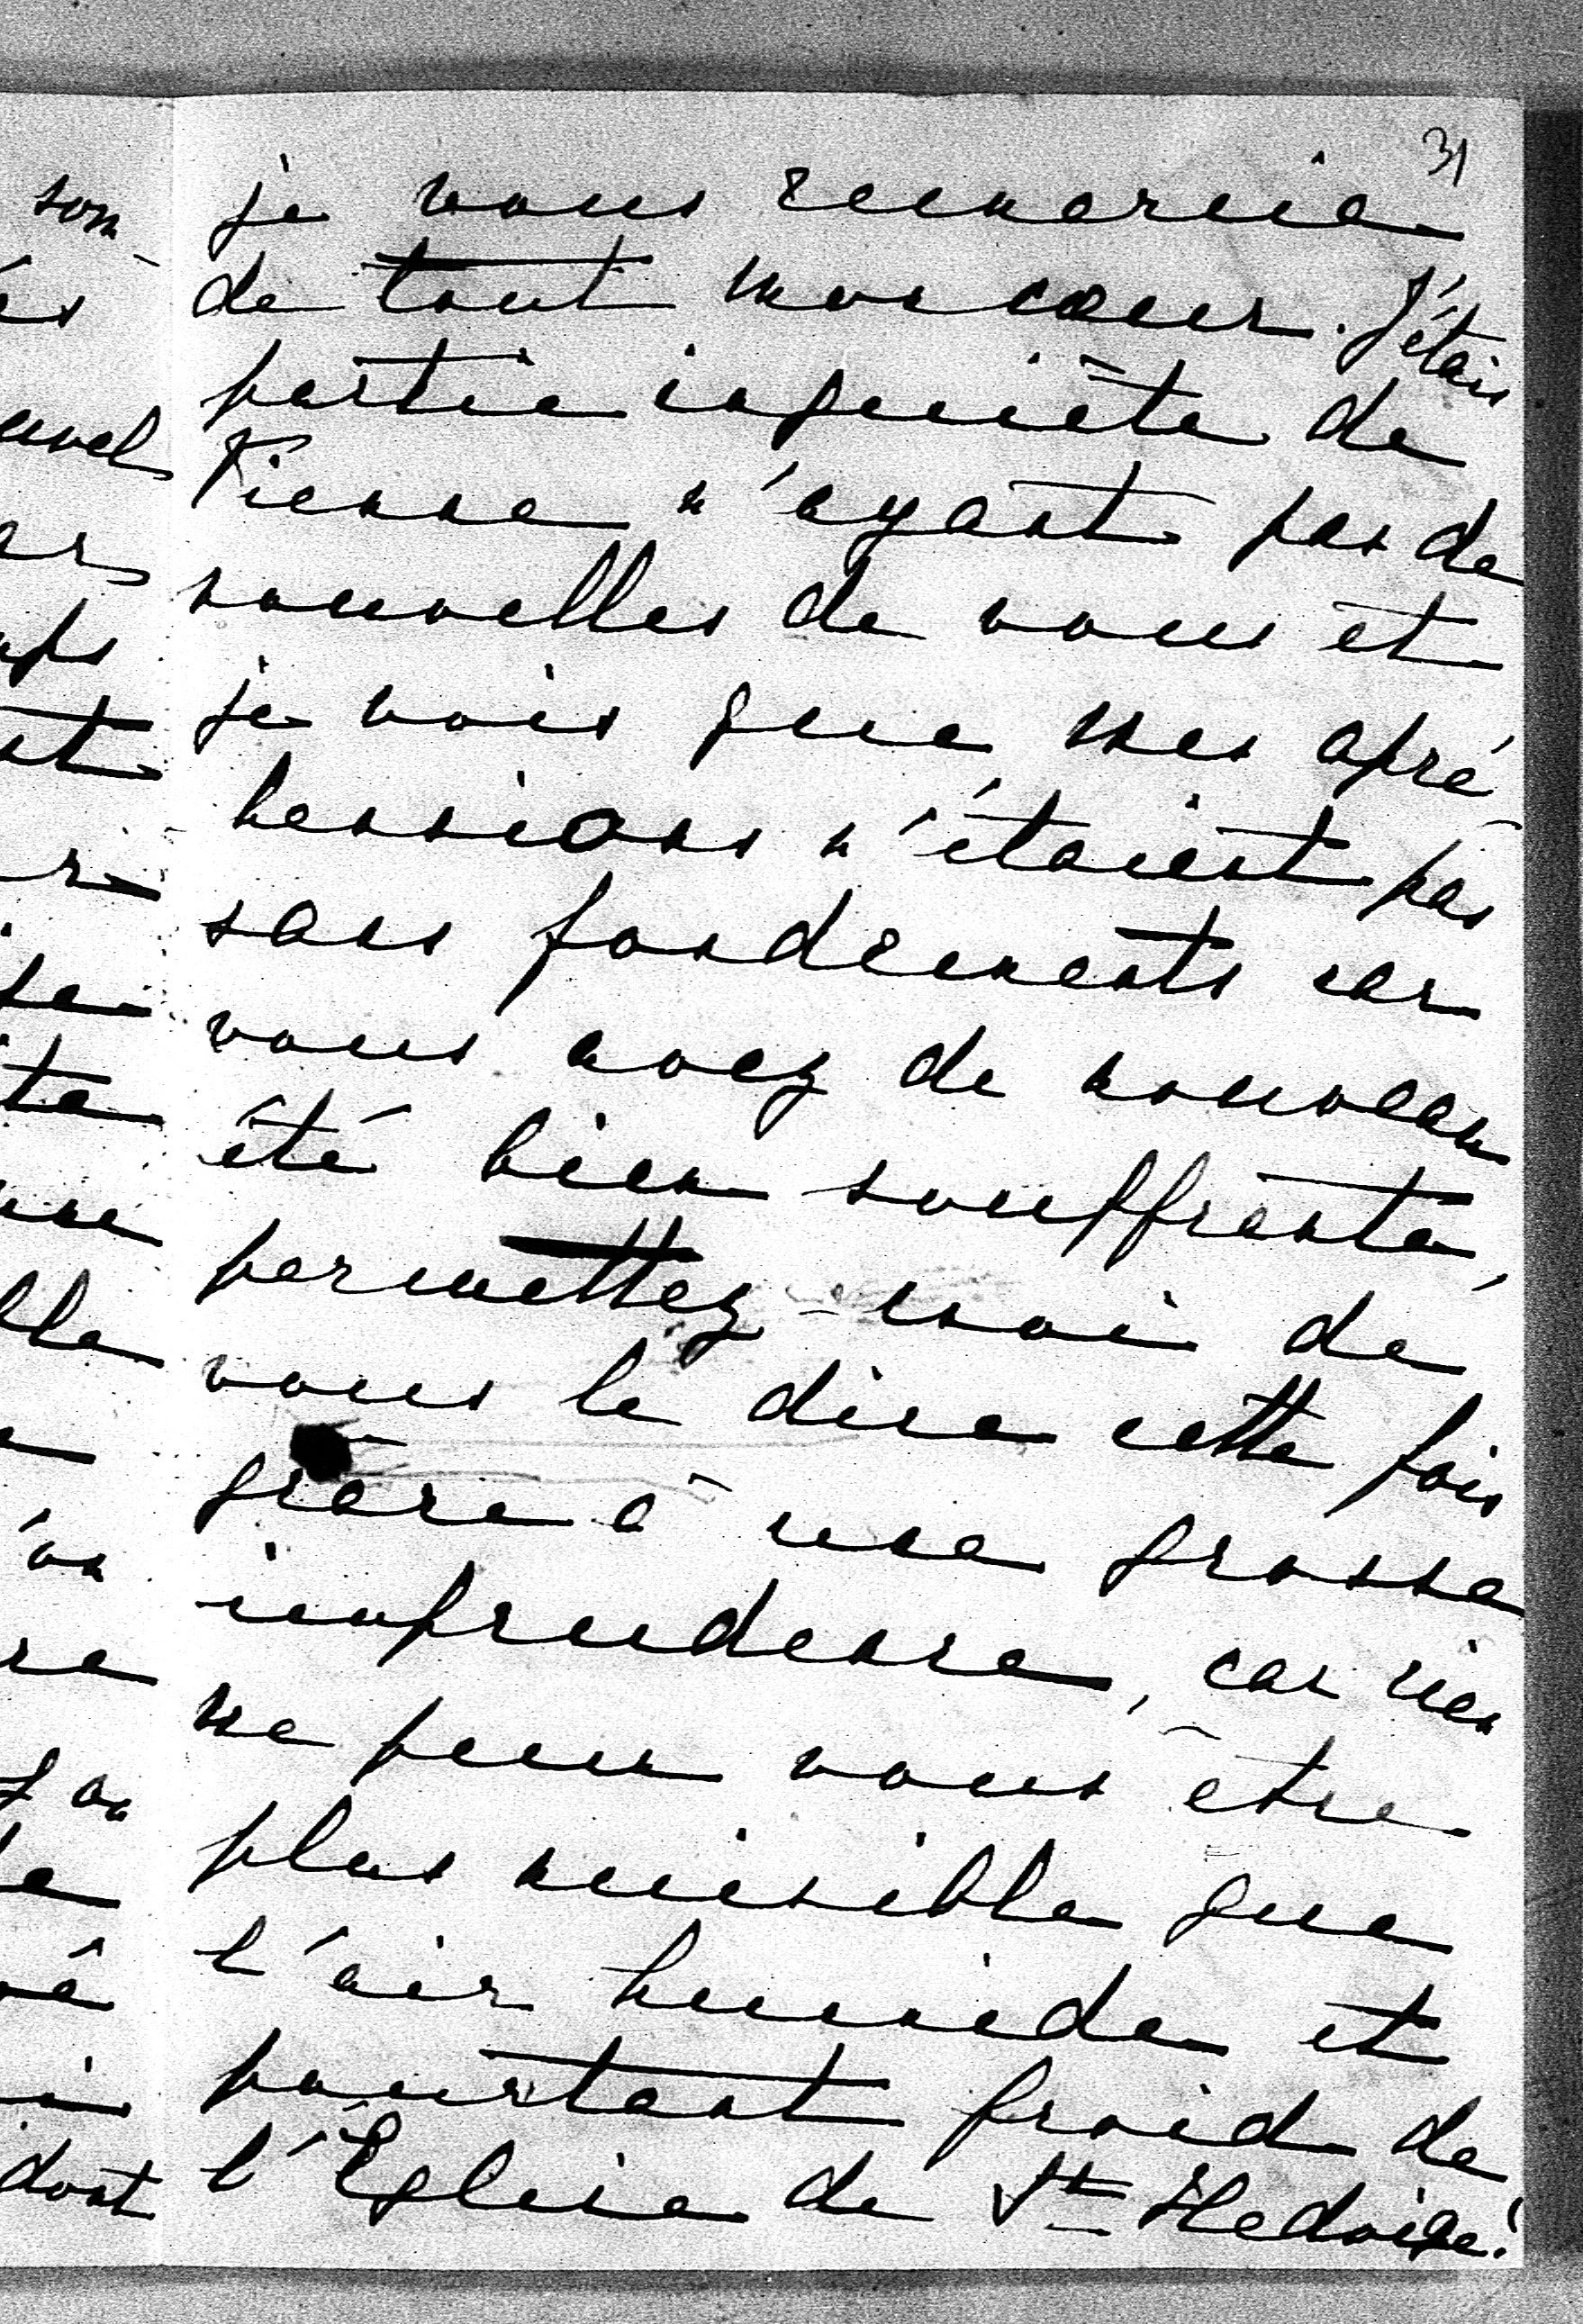 31
je vous remercie
de tout mon cœur. J'étais
partie inquiète de
Vienne n'ayant pas de
nouvelles de vous et
je vois que mes apré
hensions n'étaient pas
sans fondements car
vous avez de nouveau
été bien souffrante,
permettez-moi de
vous le dire cette fois
grâce à une grosse
imprudence, car rien
ne peux vous être
plus nuisible que
l'air humide et
pourtant froid de
l'Église de Ste Hedwige!
son
uvel
ps
une
dont